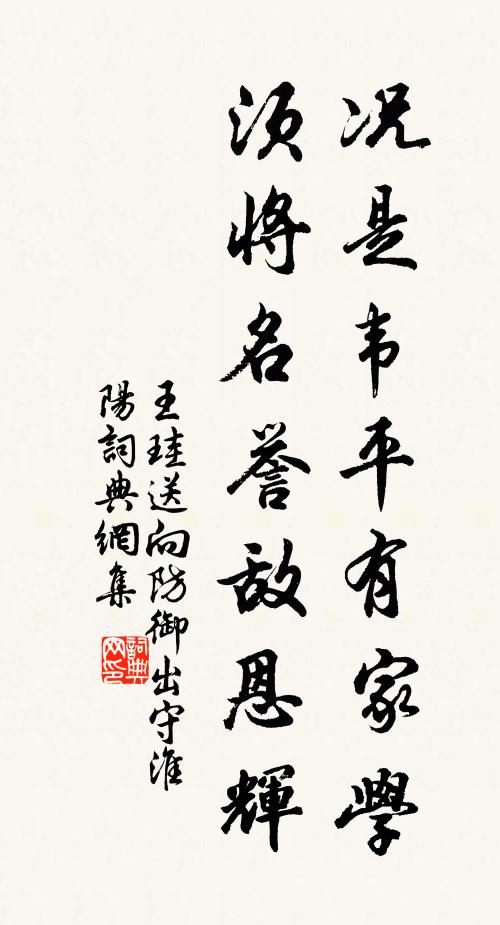 况是韦平有家學
須將名誉敌恩輝
王珪送向防御出守淮
陽詞典網集
詞典
网印